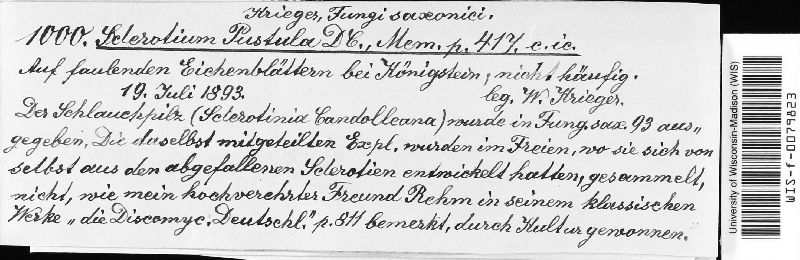 Krieger, Fungi saxonici.
1000. Sclerotium Pustula DC., Mem. p. 417. c. ic.
Auf faulenden Eichenblättern bei Königstein, nicht häufig.
19. Juli 1893. leg. W. Krieger.
Der Schlauchpilz (Sclerotinia Candolleana) wurde in Fung. sax. 93 aus„
gegeben. Die daselbst mitgeteilten Expl. wurden im Freien, wo sie sich von
selbst aus den abgefallenen Sclerotien entwickelt hatten, gesammelt,
nicht, wie mein hochverehrter Freund Rehm in seinem klassischen
Werke „die Discomyc. Deutschl." p. 811 bemerkt, durch Kultur gewonnen.
University of Wisconsin-Madison (WIS)
WIS-f-0079823